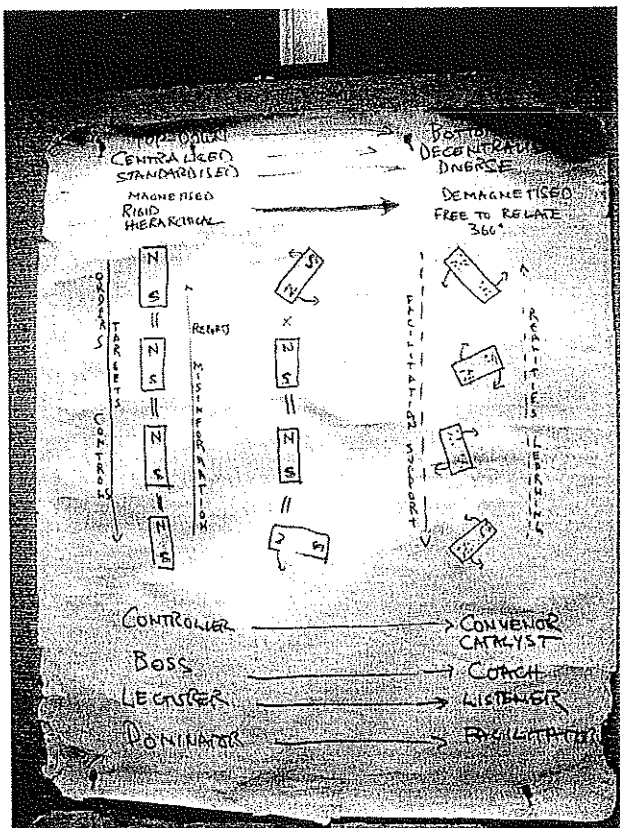 TOP-DOWN
CENTRALISED
STANDARDISED
DECENTRALI
DIVERSE
MAGNETISED
RIGID
HIERARCHICAL
DEMAGNETISED
FREE TO RELATE
360°
ORDERS
TARGETS
CONTROLS
N
S
N
S
N
S
N
S
REPORTS
MISINFORMATION
S
N
X
N
S
N
S
N
S
FACILITATION SUPPORT
REALITIES LEARNING
CONTROLLER
CONVENOR
CATALYST
BOSS
COACH
LECTURER
LISTENER
DOMINATOR
FACILITATOR